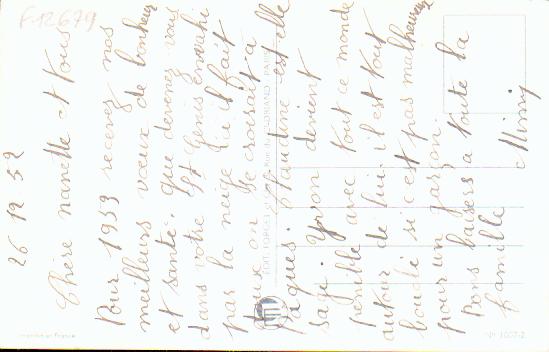 F-12679
26 12 52
Chère nanette et tous
Pour 1953 recevez nos
meilleurs vœux de bonheur
et santé. que devenez vous
dans votre Gers enneigé
par la neige qu'il fait
doux on se croirait à
Pâques. Claudine est elle
sage. Yvon devient
pénible avec tout ce monde
autour de lui. il est tout
bouclé si c'est pas malheureux
pour un garçon.
bons baisers à toute la
famille Mimi
Imprimé en France